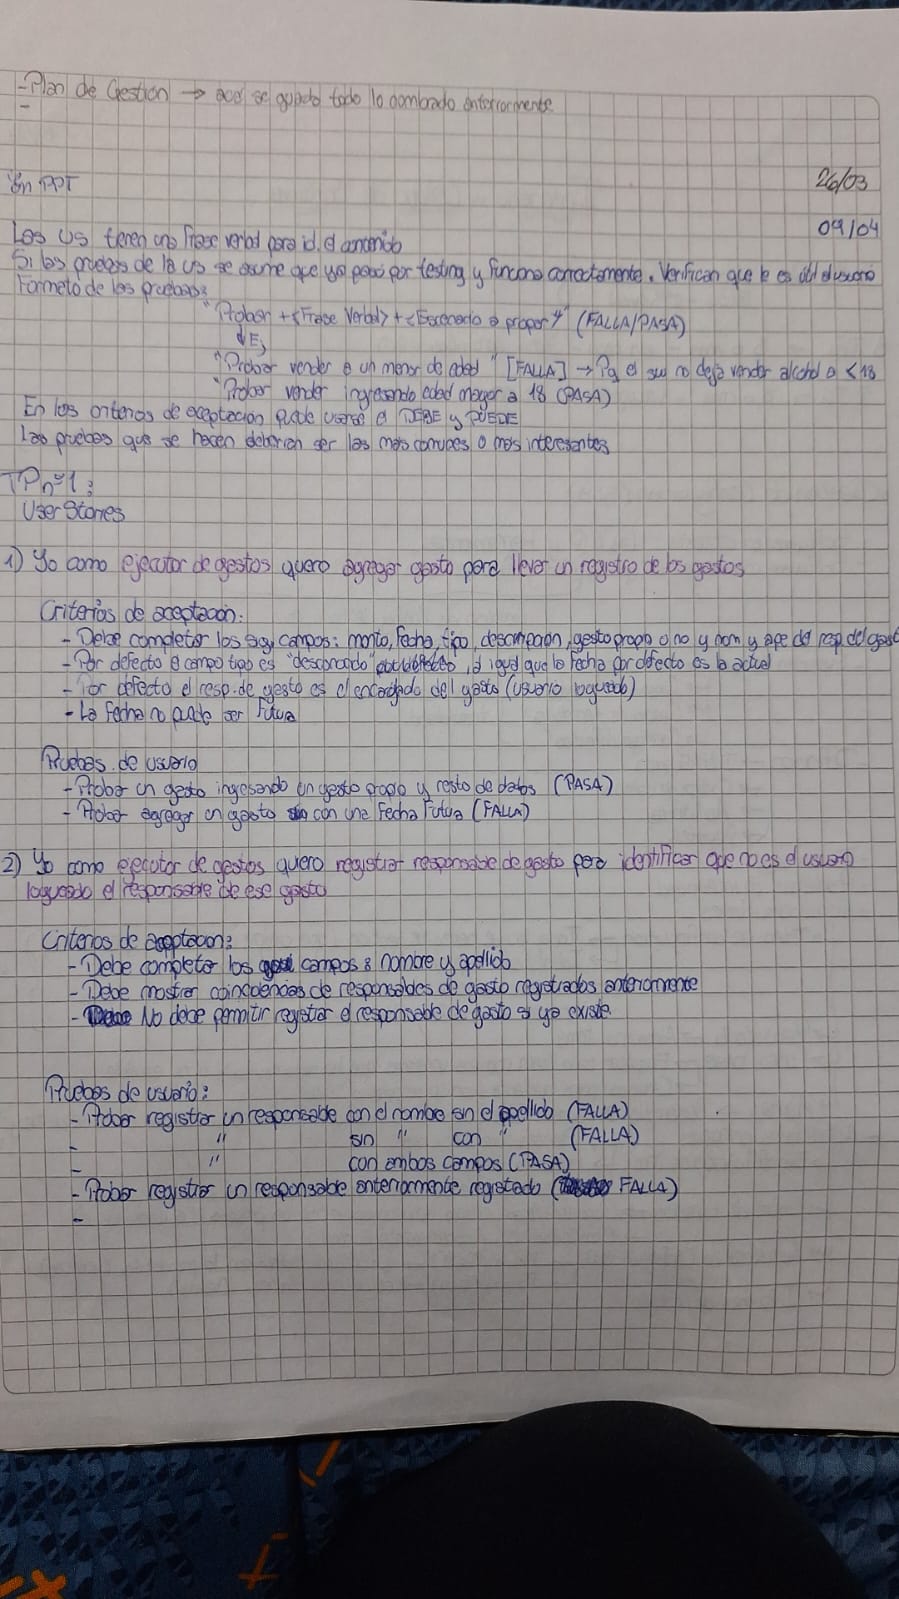 - Plan de Gestión → acá se guarda todo lo nombrado anteriormente
-
En PPT
26/03
09/04
Las US tienen una frase verbal para id. el contenido
Si las pruebas de la US se asume que ya pasó por testing y funciona correctamente. Verifican que le es útil al usuario
Formato de las pruebas:
"Probar + <Frase Verbal> + <Escenario a probar>" (FALLA/PASA)
↓Ej
"Probar vender a un menor de edad" [FALLA] → Pq el sw no deja vender alcohol a <18
"Probar vender ingresando edad mayor a 18 (PASA)
En los criterios de aceptación puede usarse el DEBE y PUEDE
Las pruebas que se hacen deberían ser las más comunes o más interesantes
TP nº1:
User Stories
1) Yo como ejecutor de gastos quiero agregar gasto para llevar un registro de los gastos
Criterios de aceptación:
- Debe completar los sig campos: monto, fecha, tipo, descripción, gasto propio o no y nom y ape del resp del gasto
- Por defecto el campo tipo es "desconocido", al igual que la fecha por defecto es la actual
- Por defecto el resp. de gasto es el encargado del gasto (usuario logueado)
- La fecha no puede ser futura
Pruebas de usuario
- Probar un gasto ingresando un gasto propio y resto de datos (PASA)
- Probar agregar un gasto con una fecha futura (FALLA)
2) Yo como ejecutor de gastos quiero registrar responsable de gasto para identificar que no es el usuario
logueado el responsable de ese gasto
Criterios de aceptación:
- Debe completar los campos: nombre y apellido
- Debe mostrar coincidencias de responsables de gasto registrados anteriormente
- No debe permitir registrar el responsable de gasto si ya existe
Pruebas de usuario:
- Probar registrar un responsable con el nombre sin el apellido (FALLA)
- " sin " con " (FALLA)
- " con ambos campos (PASA)
- Probar registrar un responsable anteriormente registrado (FALLA)
-